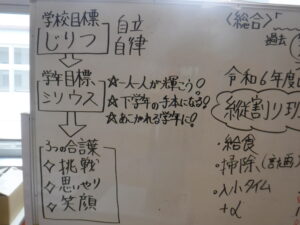 学校目標
じりつ
自立
自律
学年目標
ミリウス
☆一人一人が輝こう!
☆下学年の手本になる!
☆あこがれる学年に!
3つの合言葉
◇挑戦
◇思いやり
◇笑顔
〈総合〉
過去
令和6年度
縦割り班
・給食
・掃除、(計画)
・入小タイム
+α